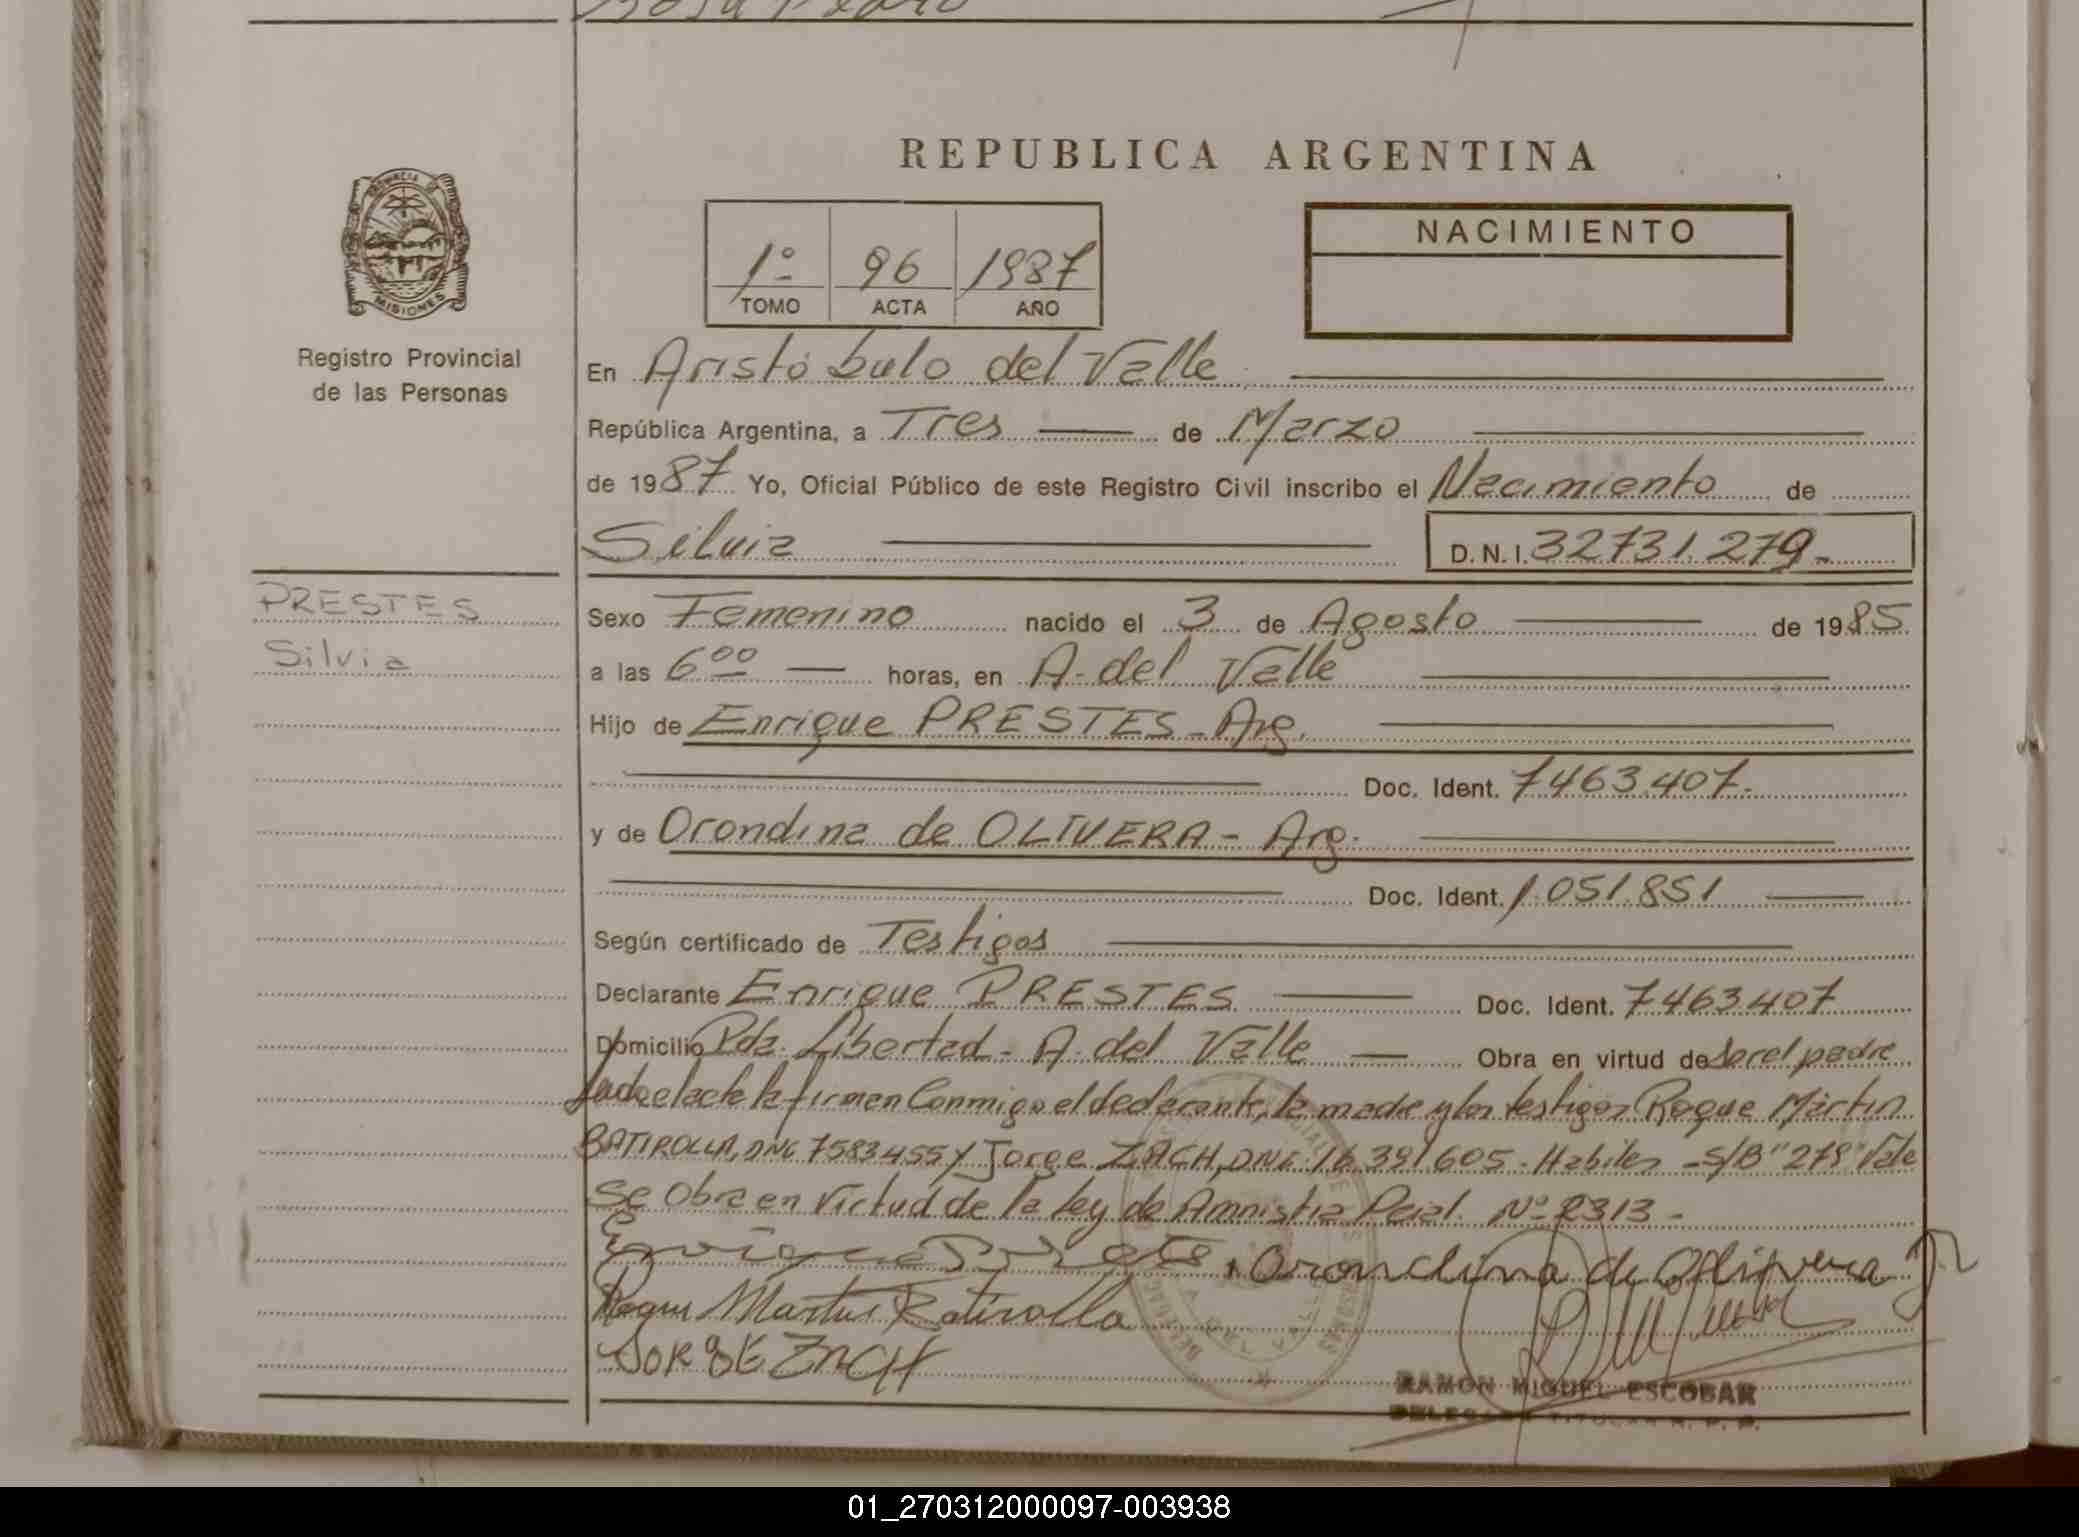 REPUBLICA ARGENTINA
PROVINCIA DE
MISIONES
Registro Provincial
de las Personas
1º 96 1987
TOMO ACTA AÑO
NACIMIENTO
En Aristóbulo del Valle
República Argentina, a Tres de Marzo
de 1987 Yo, Oficial Público de este Registro Civil inscribo el Nacimiento de
Silvia D.N.I. 32731.279-
PRESTES
Silvia
Sexo Femenino nacido el 3 de Agosto de 1985
a las 6 00 horas, en A. del Valle
Hijo de Enrique PRESTES - Arg.
Doc. Ident. 7463.407-
y de Orondina de OLIVERA - Arg.
Doc. Ident. 1.051.851
Según certificado de Testigos
Declarante Enrique PRESTES Doc. Ident. 7463407
Domicilio Pda. Libertad - A. del Valle Obra en virtud de ser el padre
el acta la firman Conmigo el declarante, la madre y los testigos Roque Martin
BATIROLLA, DNI 7583455 y Jorge ZACH, DNI 16.391605 - Habiles - S/B "279" Vale
Se Obra en Virtud de la ley de Amnistia Pcial. Nº 2313 -
Enrique Prestes Orondina de Olivera
Roque Martin Batirolla
JORGE ZACH
RAMON MIGUEL ESCOBAR
DELEGADO TITULAR R. P. P.
01_270312000097-003938